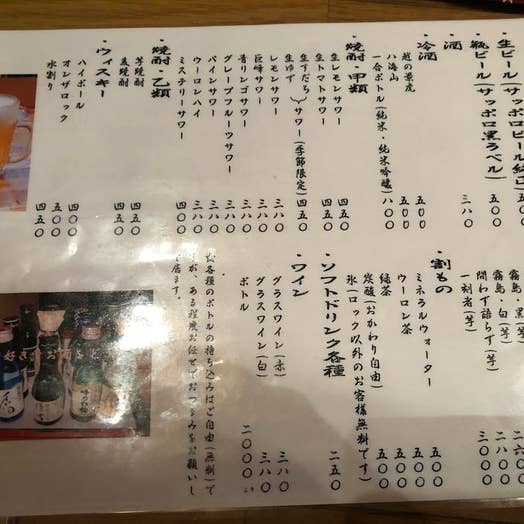 ・生ビール(サッポロビール
五〇〇
・瓶ビール(サッポロ黒ラベル)
五〇〇
・酒
三八〇
・冷酒
越の景虎
五〇〇
八海山
五〇〇
一合ボトル(純米・純米吟醸)
八〇〇
・焼酎・甲類
生レモンサワー
四五〇
生トマトサワー
四五〇
生すだち
生ゆず
サワー(季節限定)
四五〇
レモンサワー
三八〇
巨峰サワー
三八〇
青リンゴサワー
三八〇
グレープフルーツサワー
三八〇
パインサワー
三八〇
ウーロンハイ
三八〇
ミステリーサワー
四〇〇
・焼酎・乙類
芋焼酎
四五〇
麦焼酎
四五〇
・ウィスキー
ハイボール
四〇〇
オンザロック
五〇〇
水割り
四五〇
霧島・黒(芋)
二六〇
霧島・白(芋)
二六〇〇
問わず語らず(芋)
二八〇〇
一刻者(芋)
三〇〇〇
・割もの
ミネラルウォーター
五〇〇
ウーロン茶
五〇〇
緑茶
五〇〇
炭酸(おかわり自由)
四〇〇
氷(ロック以外のお客様無料です)
・ソフトドリンク各種
二五〇
・ワイン
グラスワイン(赤)
三八〇
グラスワイン(白)
三八〇
ボトル
二〇〇〇
各種のボトルの持ち込みはご自由(無料)で
が、ある程度お任せでおつまみをお願いし
て居ます。
好き